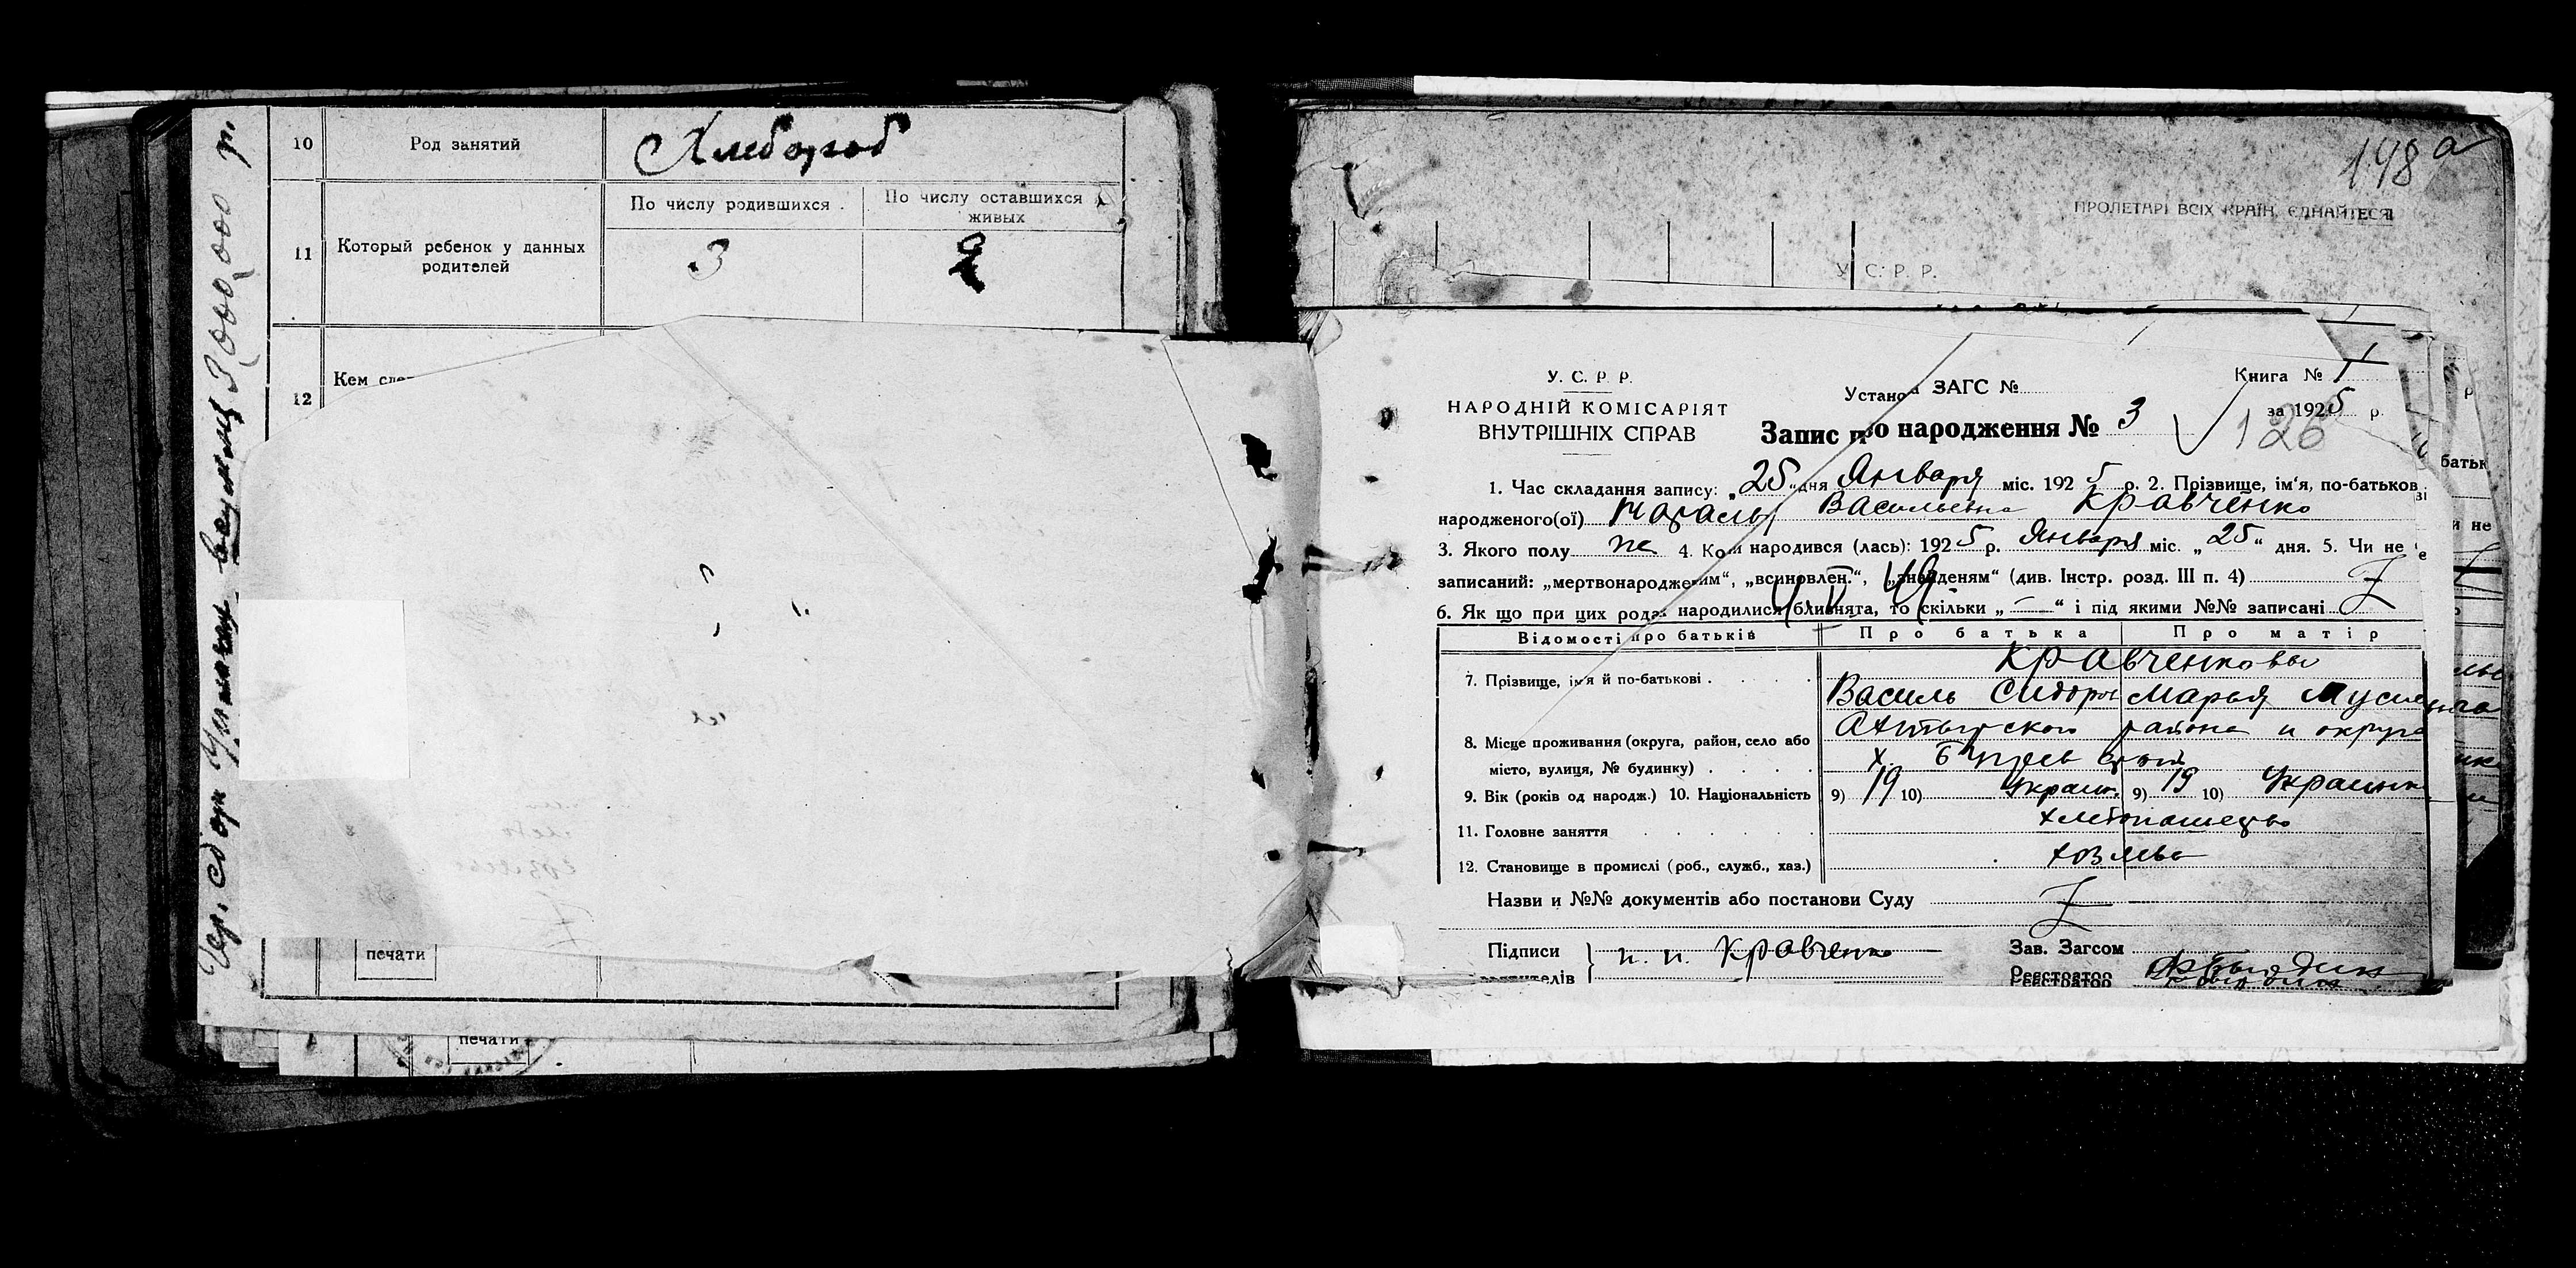 10 Род занятий Хлебороб
11 Который ребенок у данных родителей
По числу родившихся
По числу оставшихся живых
3 2
12 Кем
печати
печати
Гер. сбор Уплачен 3000,000 р.
198 а
ПРОЛЕТАРІ ВСІХ КРАЇН, ЄДНАЙТЕСЯ
У. С. Р. Р.
У. С. Р. Р.
НАРОДНІЙ КОМІСАРІЯТ
ВНУТРІШНІХ СПРАВ
Установа ЗАГС №
Книга № 1
за 1925 р.
Запис про народження № 3
126
1. Час складання запису: „25“ дня Января міс. 1925 р. 2. Прізвище, ім‘я, по-батькові
народженого(ої) Васильевна Кравченко
3. Якого полу ж 4. Коли народився (лась): 1925 р. Января міс. „25“ дня. 5. Чи не
записаний: „мертвонародженим“, „всиновлен.“, „знайденям“ (див. Інстр. розд. III п. 4) Z
6. Як що при цих родах народилися близнята, то скільки „—“ і під якими №№ записані Z
Відомості про батьків Про батька Про матір
Кравченковы
7. Прізвище, ім‘я й по-батькові
Василь Сидоров Марья
8. Місце проживання (округа, район, село або
місто, вулиця, № будинку)
Ахтырского района и округа
х.
9. Вік (років од народж.) 10. Національність 9) 19 10) Украин. 9) 19 10) Украинк
11. Головне заняття хлебопашество
12. Становище в промислі (роб., служб., хаз.)
Назви и №№ документів або постанови Суду Z
Підписи п. п. Кравченко
Зав. Загсом
Реєстратор
батьк
и не